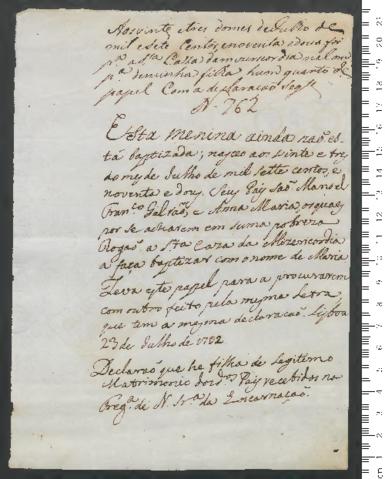 Aos vinte e tres do mes de Julho de
mil e sete centos, e noventa e dous foi
pª a Stª Caza da mizericordia
pª de minha filha hum quarto de
papel Com a declaracaõ segte
N. 762
Esta menina ainda naõ es-
tá baptizada; nasceo aos vinte e tres
do mez de Julho de mil sette centos, e
noventa e dous. Seus Pays saõ Manoel
Francº Galvaõ, e Anna Maria, os quaes
por se acharem em suma pobreza
Rogaõ a Sta Caza da Mizericordia
a faça baptizar com o nome de Maria
Leva este papel para a procurarem
com outro feito pela mesma letra,
que tem a mesma declaracaõ. Lisboa
23 de Julho de 1792
Declaraõ que he filha de legitimo
Matrimonio dos dºs Pays recebidos na
Fregª de N. Srª da Encarnaçaõ.